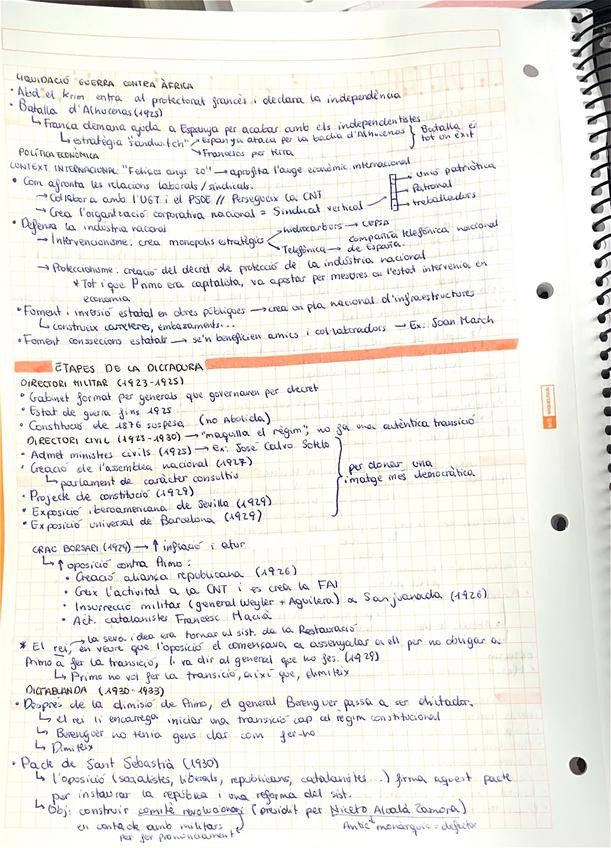 LIQUIDACIÓ GUERRA CONTRA ÀFRICA
• Abd el Krim entra al protectorat francès i declara la independència
• Batalla d'Alhucenas (1925)
↳ França demana ajuda a Espanya per acabar amb els independentistes
↳ estratègia "Sandwitch" Espanya ataca per la badia d'Alhucenas
Francesos per terra
Batalla és tot un èxit
POLÍTICA ECONÒMICA
CONTEXT INTERNACIONAL "Feliços anys 20" → aprofita l'auge econòmic internacional
• Com afronta les relacions laborals/sindicals.
→ Col·labora amb l'UGT i el PSOE // Persegueix la CNT
→ Crea l'organització corporativa nacional = Sindical vertical
→ Unió patriòtica
→ Patronal
→ treballadors
• Defensa la indústria nacional
→ Intervencionisme: crea monopolis estratègics
hidrocarburs → CEPSA
Telefònica → compañia telefónica nacional de España.
→ Proteccionisme: creació del decret de protecció de la indústria nacional
* Tot i que Primo era capitalista, va apostar per mesures on l'estat intervenia en
economia
• Foment i inversió estatal en obres públiques → crea un pla nacional d'infraestructures
↳ construeix carreteres, embassaments...
• Foment conssecions estatals → se'n beneficien amics i col·laboradors → Ex: Joan March
ETAPES DE LA DICTADURA
DIRECTORI MILITAR (1923-1925)
• Gabinet format per generals que governaven per decret
• Estat de guerra fins 1925
• Constitució de 1876 suspesa (no Abolida)
DIRECTORI CIVIL (1925-1930) → "maquilla el règim"; no fa una autèntica transició
• Admet ministres civils (1925) → Ex: José Calvo Sotelo
• Creació de l'assemblea nacional (1927)
↳ parlament de caràcter consultiu
• Projecte de constitució (1929)
• Exposició iberoamericana de Sevilla (1929)
• Exposició universal de Barcelona (1929)
per donar una
imatge més democràtica
CRAC BORSARI (1929) → ↑ inflació i atur
↳ ↑ oposició contra Primo:
• Creació aliança republicana (1926)
• Creix l'activitat a la CNT i es crea la FAI
• Insurrecció militar (general Weyler + Aguilera) a Sanjuanada (1926)
• Act. catalanistes Francesc Macià
→ la seva idea era tornar al sist. de la Restauració
* El rei, en veure que l'oposició el començava a assenyalar a ell per no obligar a
Primo a fer la transició, li va dir al general que ho fes. (1929)
↳ Primo no vol fer la transició, així que, dimiteix
DICTABLANDA (1930-1933)
• Després de la dimisió de Primo, el general Berenguer passa a ser dictador.
↳ el rei li encarrega iniciar una transició cap al règim constitucional
↳ Berenguer no tenia gens clar com fer-ho
↳ Dimiteix
• Pacte de Sant Sebastià (1930)
↳ l'oposició (socialistes, liberals, republicans, catalanistes...) firma aquest pacte
per instaurar la república i una reforma del sist.
↳ Obj: construir comitè revolucionari (presidit per Niceto Alcalá Zamora)
en contacte amb militars
per fer pronunciament
Antic monàrquic